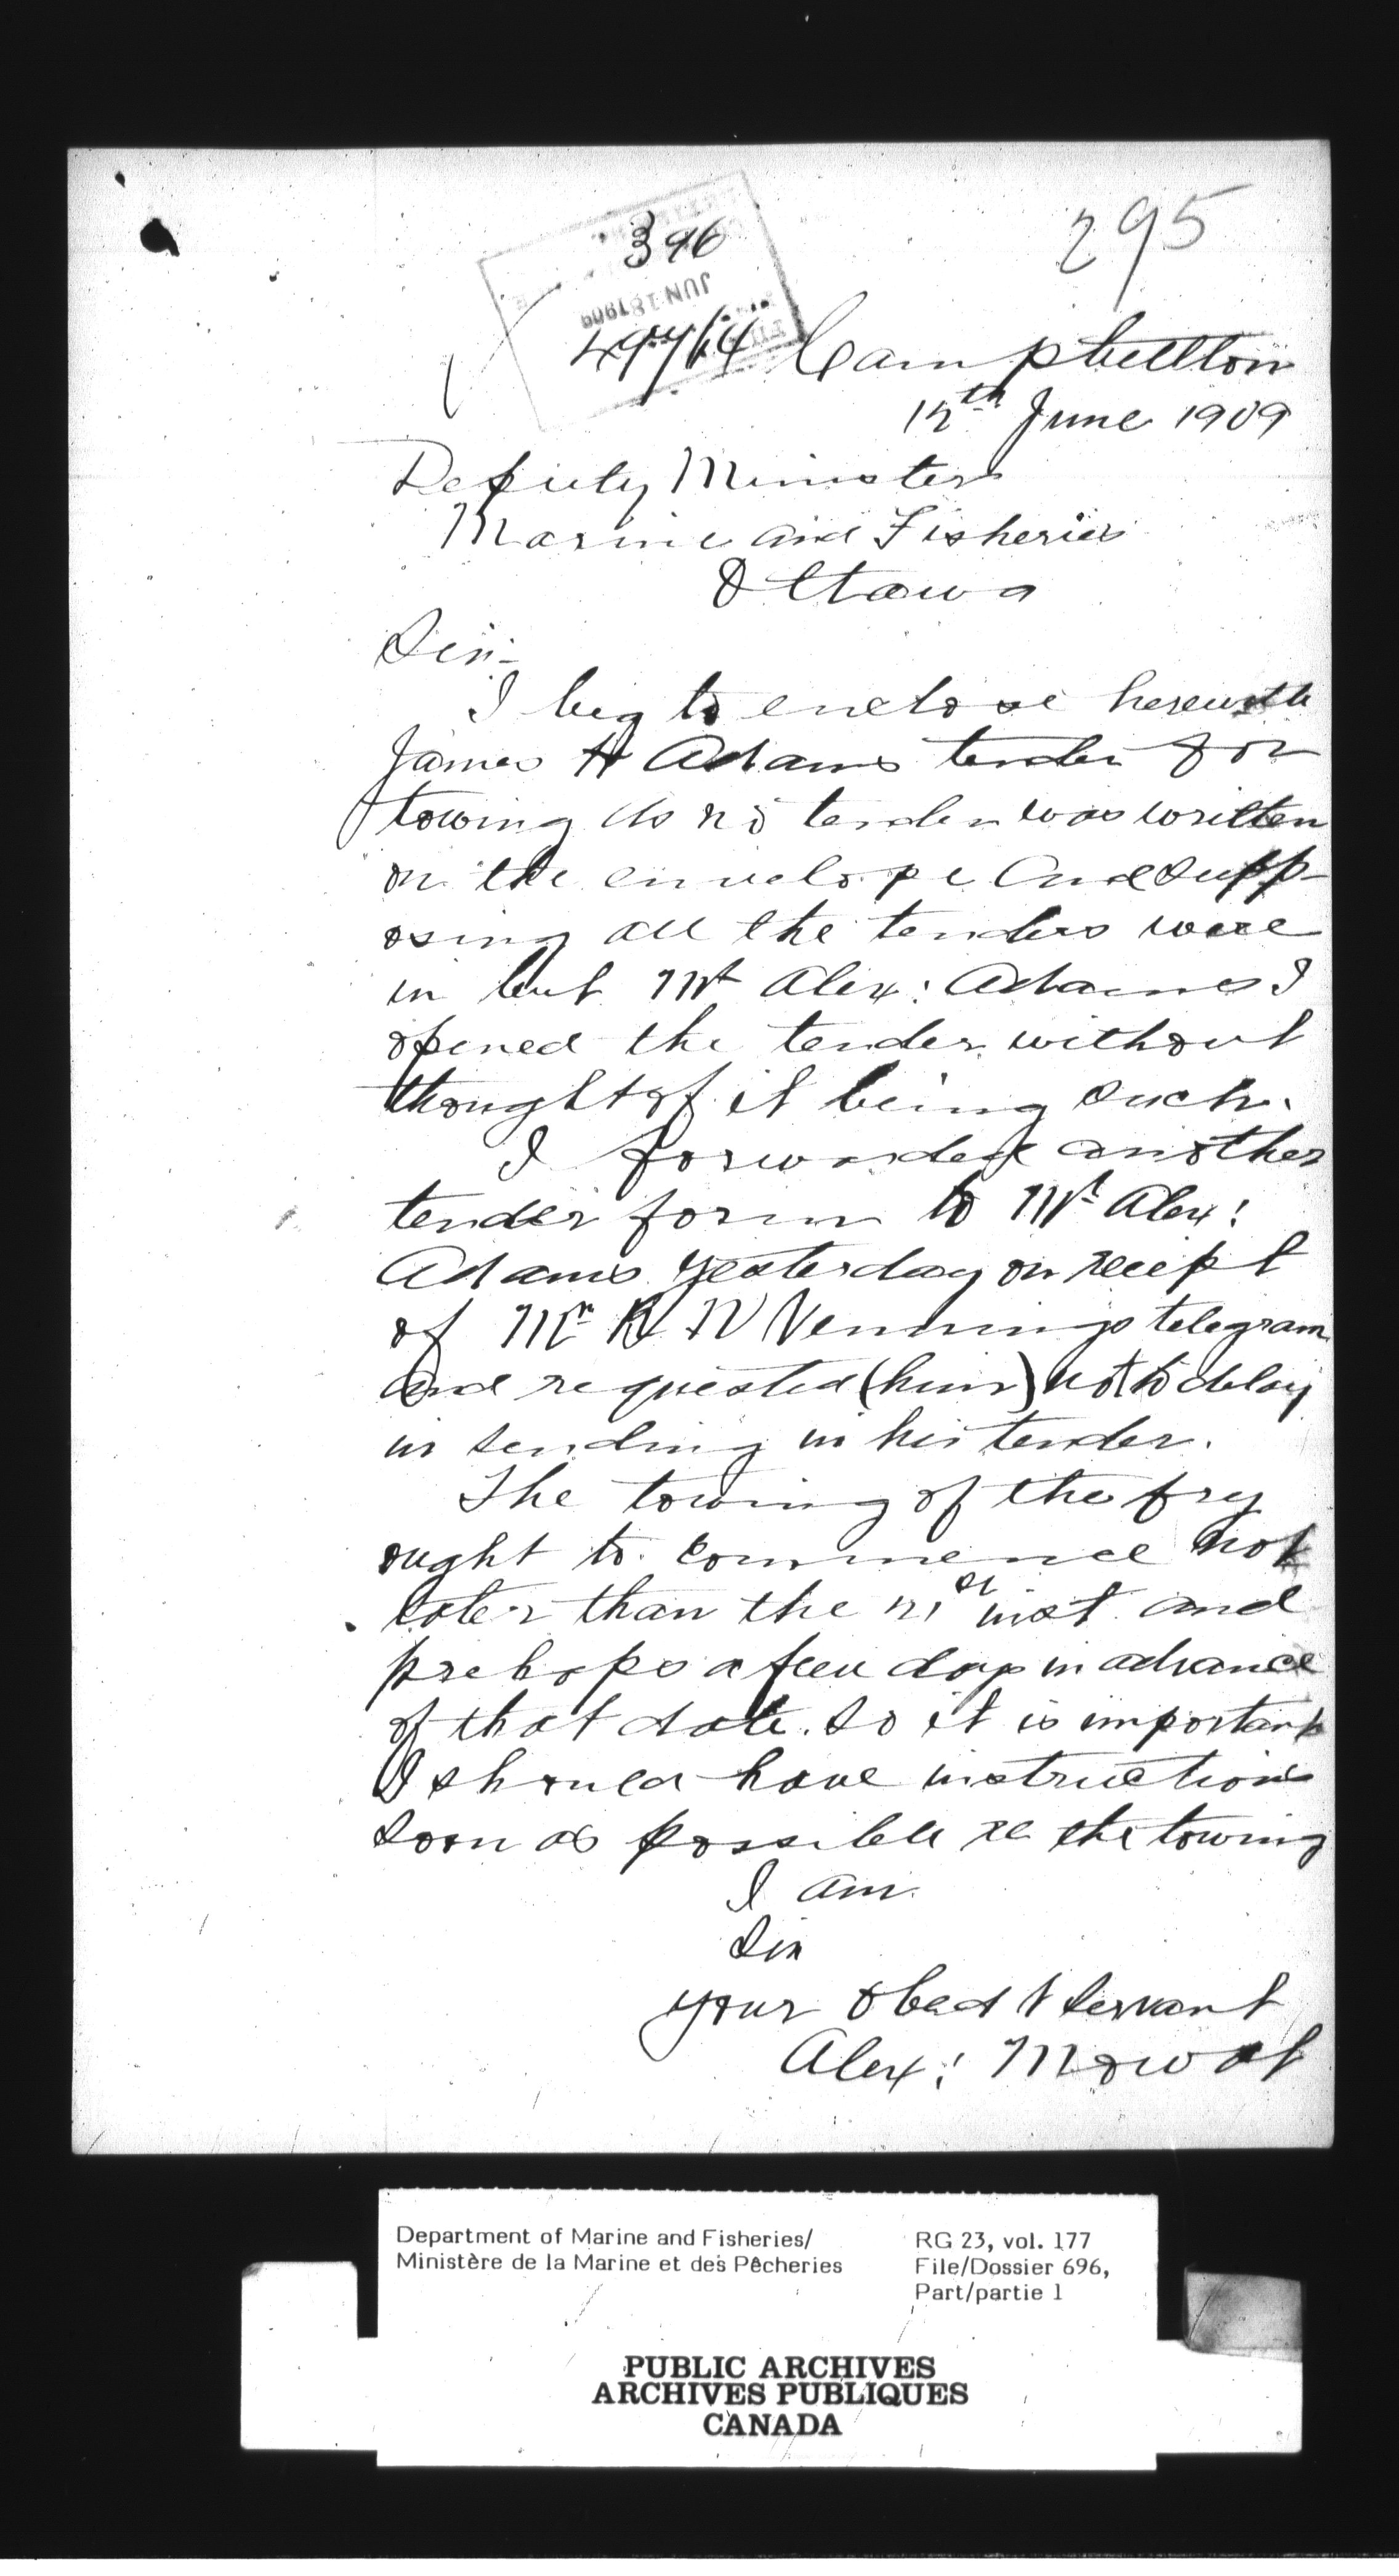 295
396
JUN 18 1909
49714
Campbellton
12th June 1909
Deputy Minister
Marine and Fisheries
Ottawa
Sir:-
I beg to enclose herewith
James H Adams tender for
towing as no tender was written
on the envelope and supp-
osing all the tenders were
in but Mr Alex: Adams I
opened the tender without
thought of it being such.
I forwarded another
tender form to Mr Alex:
Adams yesterday on receipt
of Mr R N Vennings telegram
and requested (him) not to delay
in sending in his tender.
The towing of the fry
ought to commence not
later than the 21st inst and
prehaps a few days in advance
of that date. So it is important
I should have instructions
soon as possible re the towing
I am
Sir
your obedt servant
Alex: Mowat
Department of Marine and Fisheries/
Ministère de la Marine et des Pêcheries
RG 23, vol. 177
File/Dossier 696,
Part/partie 1
PUBLIC ARCHIVES
ARCHIVES PUBLIQUES
CANADA